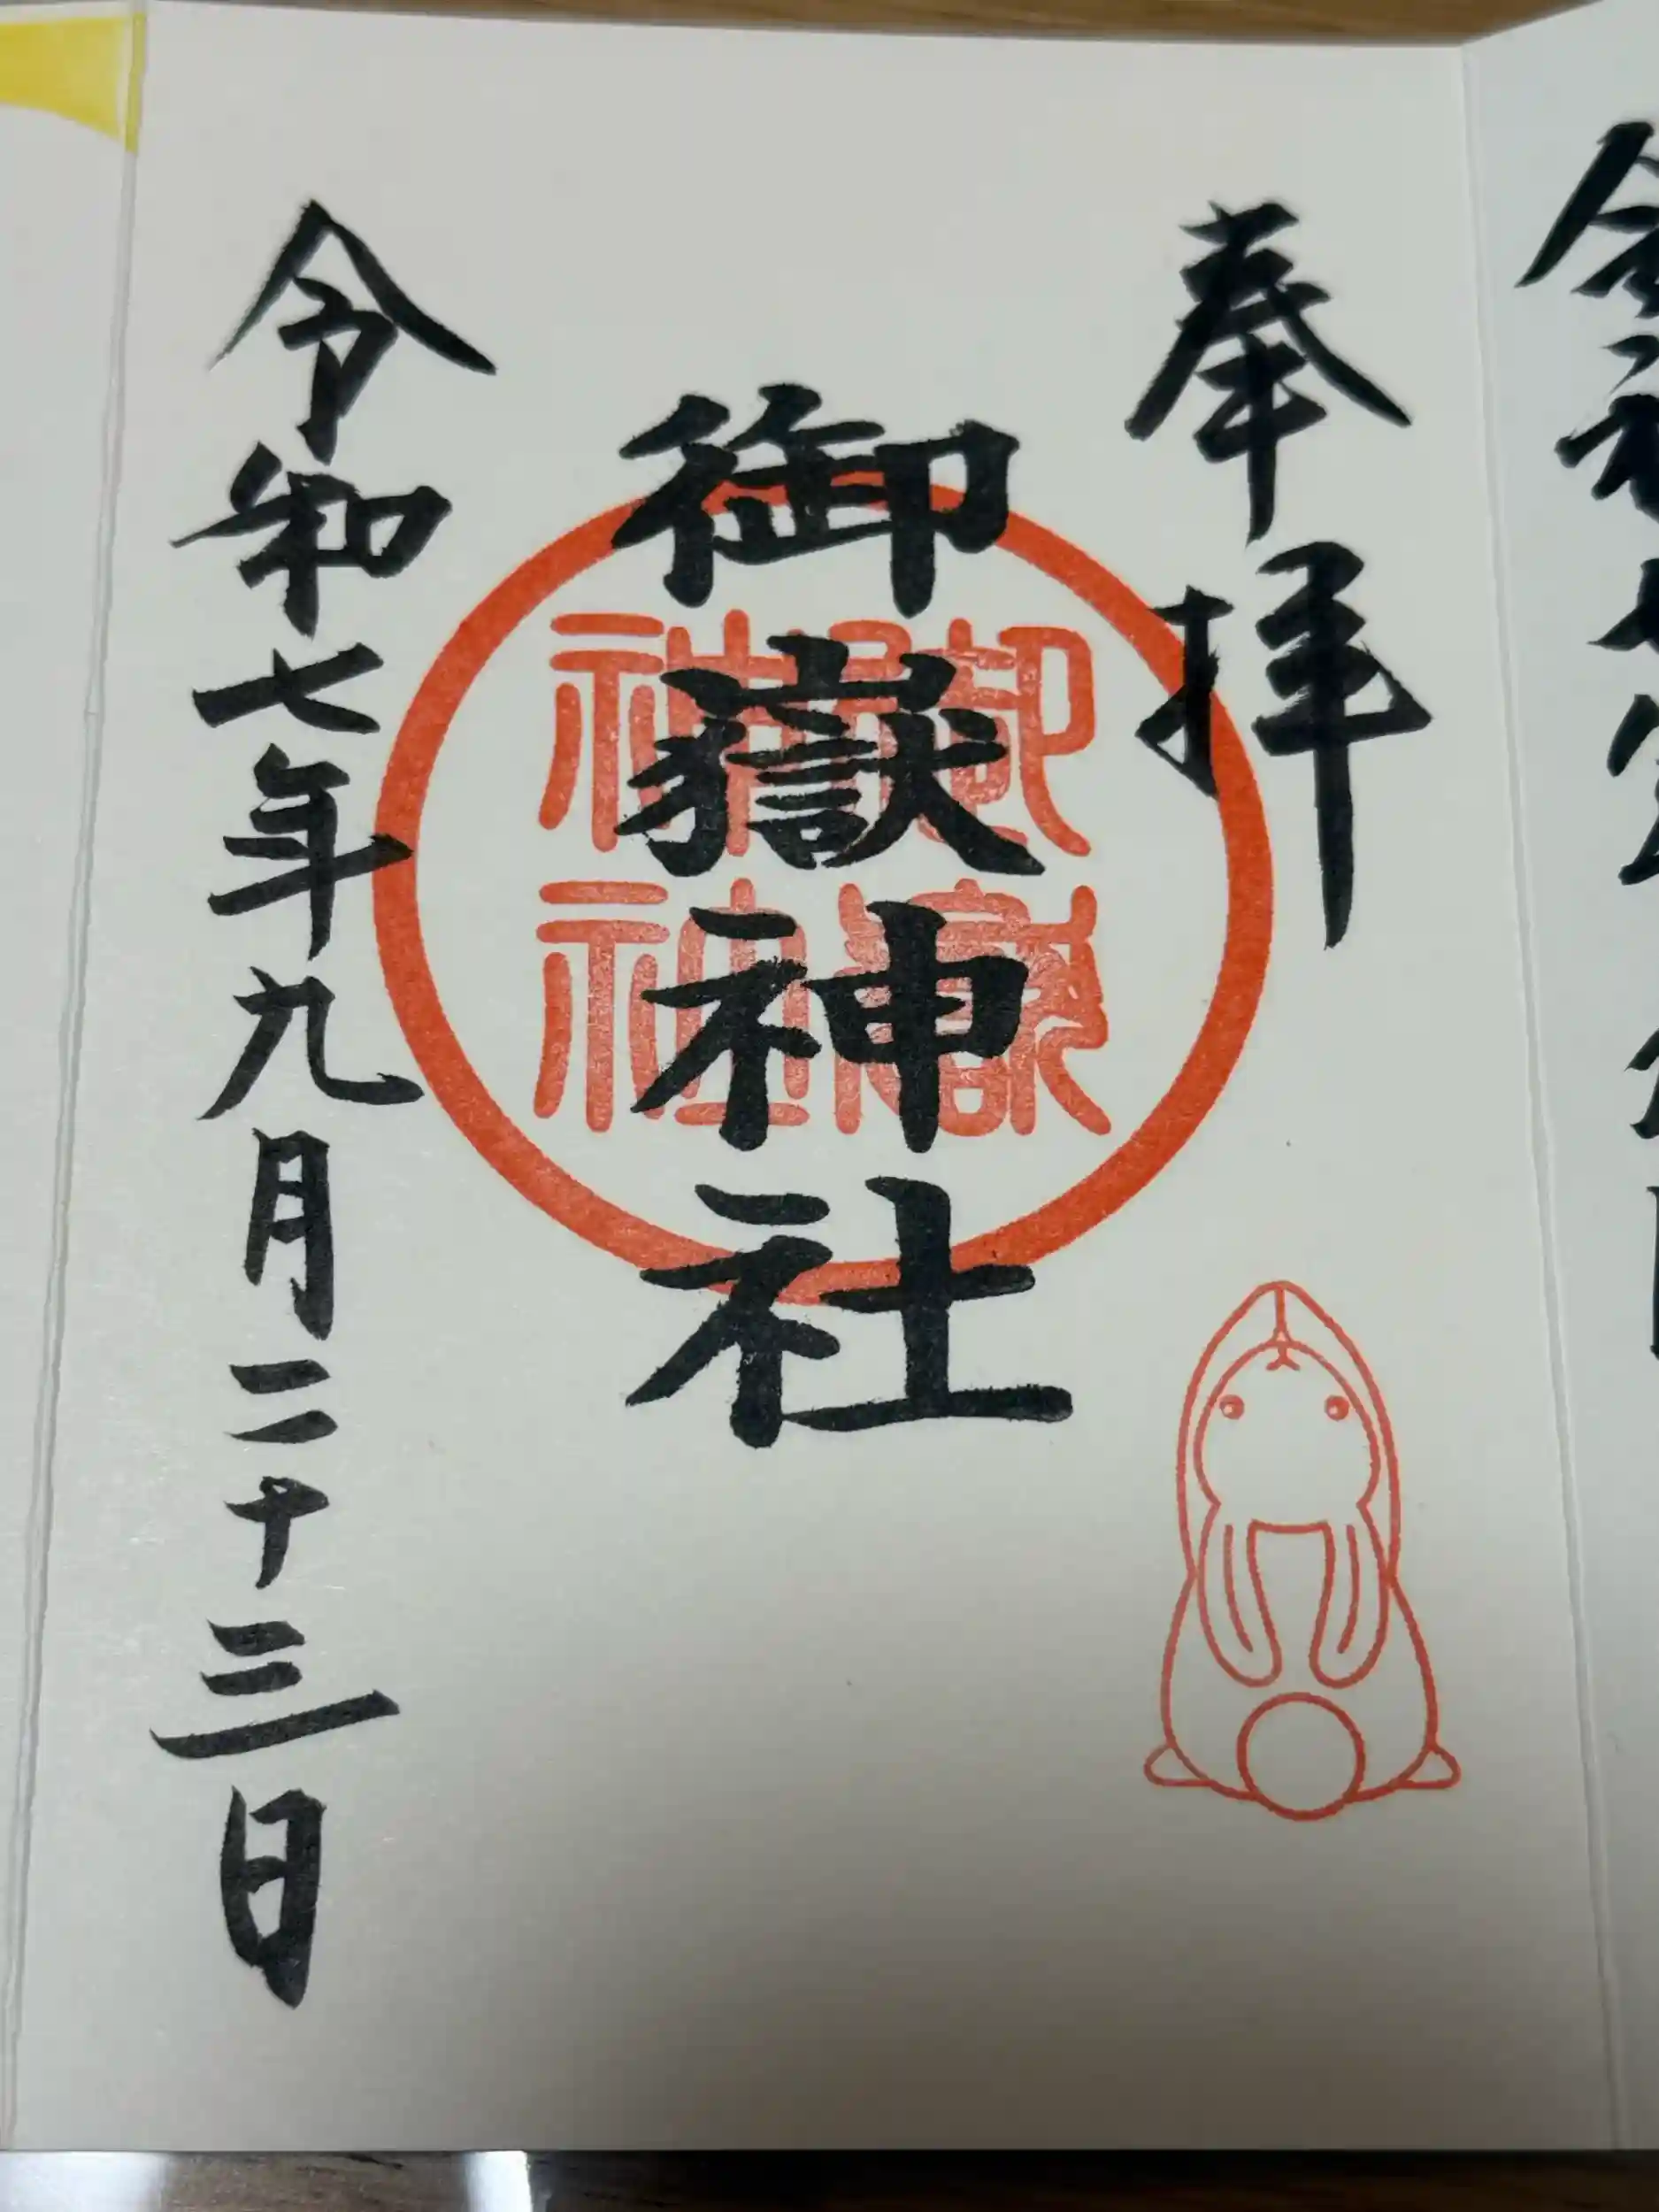 奉拝
御嶽神社
御嶽神社
令和七年九月二十三日